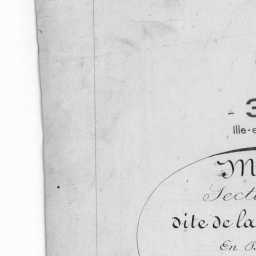 - 3
Ille-e
M
Secti
dite de la
En B